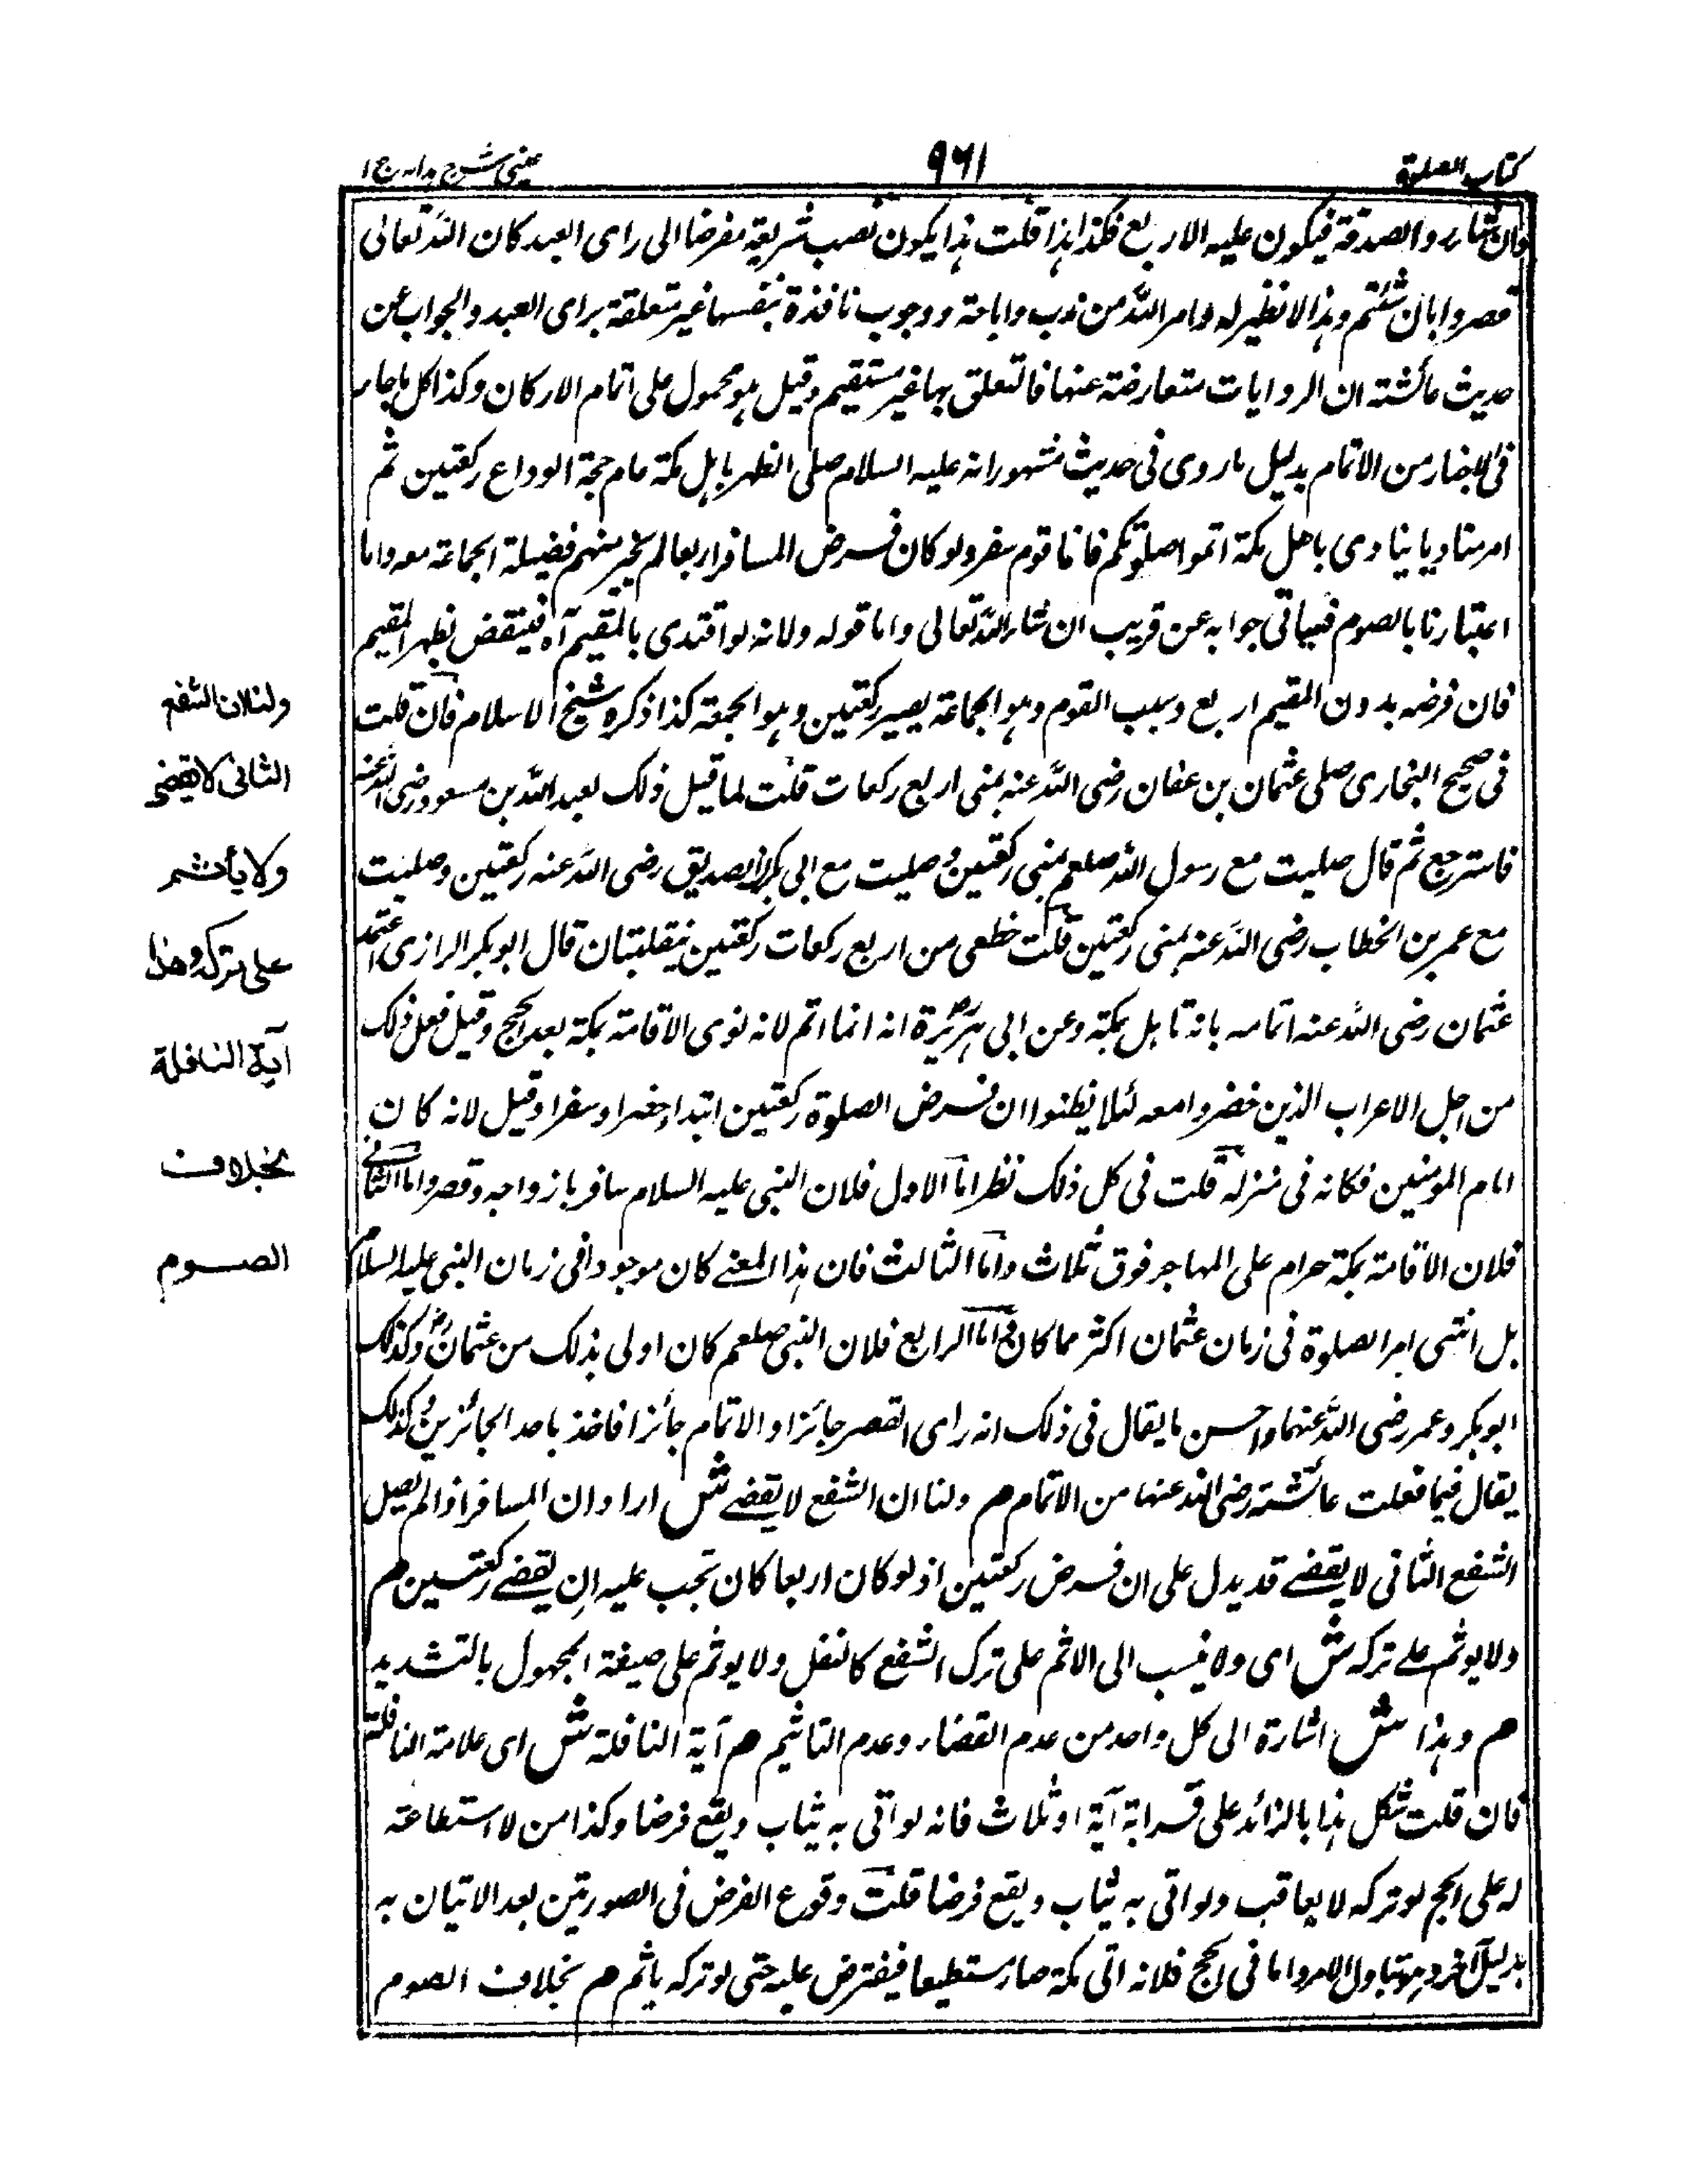 كتاب الصلوة
٩٦١
عينى شرح هدايه ج ١
وان شاء رد الصدقة فيكون عليه الاربع فكذا هذا قلت هذا يكون نصب شريعة مفوضا الى راى العبد كان الله تعالى
قصروا بان شئتم وهذا لا نظير له وامر الله من ندب واباحة ووجوب نافذة بنفسها غير متعلقة براى العبد والجواب عن
حديث عائشة ان الروايات متعارضة عنها فالتعلق بها غير مستقيم وقيل هو محمول على اتمام الاركان وكذا كل ما جاء
فى الاخبار من الاتمام بدليل ما روى فى حديث مشهور انه عليه السلام صلى الظهر باهل مكة عام حجة الوداع ركعتين ثم
امر مناديا ينادى يا هل مكة اتموا صلوتكم فانا قوم سفر ولو كان فرض المسافر اربعا لم يخير منهم فضيلة الجماعة معه واما
اعتبارنا بالصوم فيأتى جوابه عن قريب ان شاء الله تعالى واما قوله ولانه لو اقتدى بالمقيم آه فينتقض بظهر المقيم
فان فرضه بدون المقيم اربع وبسبب القوم وهو الجماعة يصير ركعتين وهو الجمعة كذا ذكره شيخ الاسلام فان قلت
فى صحيح البخارى صلى عثمان بن عفان رضى الله عنه بمنى اربع ركعات قلت لما قيل ذلك لعبد الله بن مسعود رضى الله عنه
فاسترجع ثم قال صليت مع رسول الله صلعم بمنى ركعتين وصليت مع ابى بكر الصديق رضى الله عنه ركعتين وصليت
مع عمر بن الخطاب رضى الله عنه بمنى ركعتين قلت حظى من اربع ركعات ركعتين متقبلتان قال ابو بكر الرازى اعتذر
عثمان رضى الله عنه اتمامه بانه تاهل بمكة وعن ابى هريرة انه انما اتم لانه نوى الاقامة بمكة بعد الحج وقيل فعل ذلك
من اجل الاعراب الذين حضروا معه لئلا يظنوا ان فرض الصلوة ركعتين ابتداء حضرا وسفرا وقيل لانه كان
امام المومنين فكانه فى منزله قلت فى كل ذلك نظر اما الاول فلان النبى عليه السلام سافر بازواجه وقصر واما الثانى
فلان الاقامة بمكة حرام على المهاجر فوق ثلاث واما الثالث فان هذا المعنى كان موجودا فى زمان النبى عليه السلام
بل انتهى امر الصلوة فى زمان عثمان اكثر مما كان واما الرابع فلان النبى صلعم كان اولى بذلك من عثمان وكذلك
ابو بكر وعمر رضى الله عنهما واحسن ما يقال فى ذلك انه راى القصر جائزا والاتمام جائزا فاخذ باحد الجائزين وكذلك
يقال فيما فعلت عائشة رضى الله عنها من الاتمام م ولنا ان الشفع لا يقضى ش اراد ان المسافر اذا لم يصل
الشفع الثانى لا يقضى قد يدل على ان فرض ركعتين اذ لو كان اربعا كان تجب عليه ان يقضى ركعتين م
ولا يوثم على تركه ش اى ولا ينسب الى الاثم على ترك الشفع كالنفل ولا يوثم على صيغة المجهول بالتشديد
م وهذا ش اشارة الى كل واحد من عدم القضاء وعدم التاثيم م آية النافلة ش اى علامة النافلة
فان قلت شكل هذا بالزائد على قراءة آية او ثلاث فانه لو اتى به يثاب ويقع فرضا وكذا من لا استطاعة
له على الحج لو تركه لا يعاقب ولو اتى به يثاب ويقع فرضا قلت وقوع الفرض فى الصورتين بعد الاتيان به
بدليل آخر وهو تناول الامر واما فى الحج فلانه اتى مكة صار مستطيعا فيفترض عليه حتى لو تركه ياثم م بخلاف الصوم
ولنا ان الشفع
الثانى لا يقضى
ولا يأثم
على تركه وهذا
آية النافلة
بخلاف
الصوم